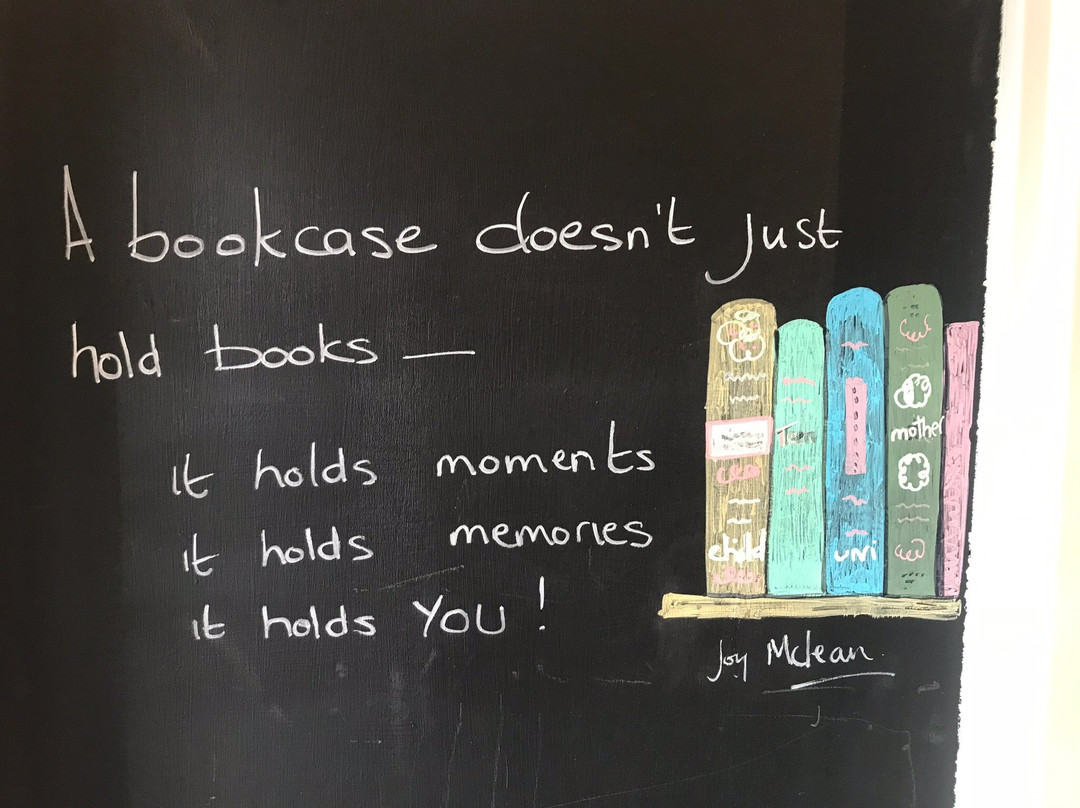 A bookcase doesn't just
hold books —
it holds moments
it holds memories
it holds YOU!
Teen
mother
child
uni
Joy Mclean